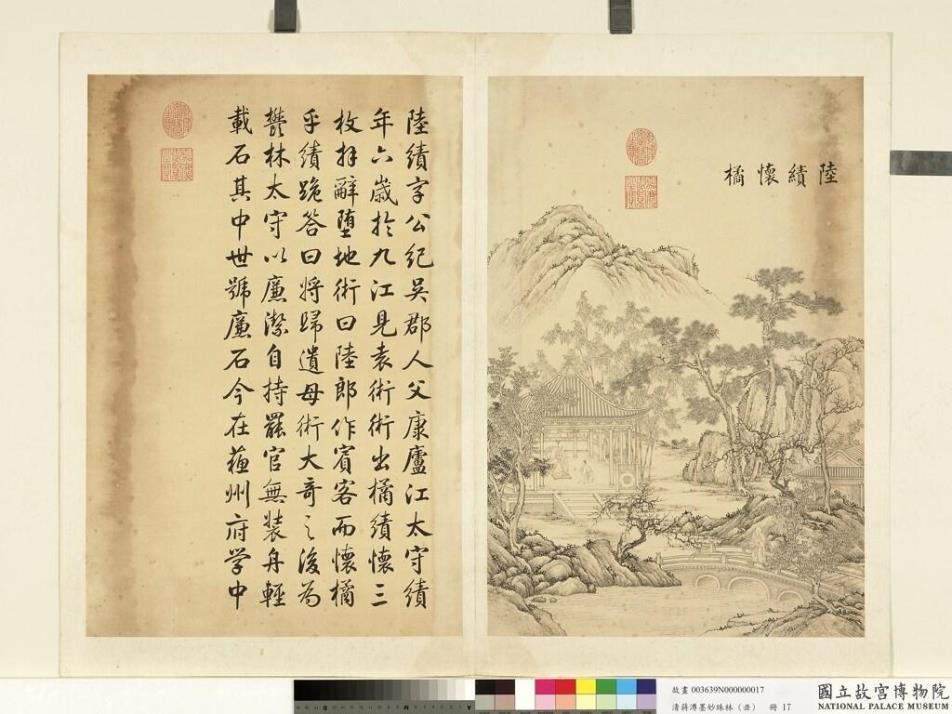 陸績懷橘
陸績字公紀吳郡人父康廬江太守績
年六歲於九江見袁術術出橘績懷三
枚拜辭墮地術曰陸郎作賓客而懷橘
乎績跪答曰將歸遺母術大奇之後為
鬱林太守以廉潔自持罷官無裝舟輕
載石其中世號廉石今在蘓州府学中
故畫 003639N000000017
清蔣溥墨妙珠林(丑) 冊 17
國立故宮博物院
NATIONAL PALACE MUSEUM